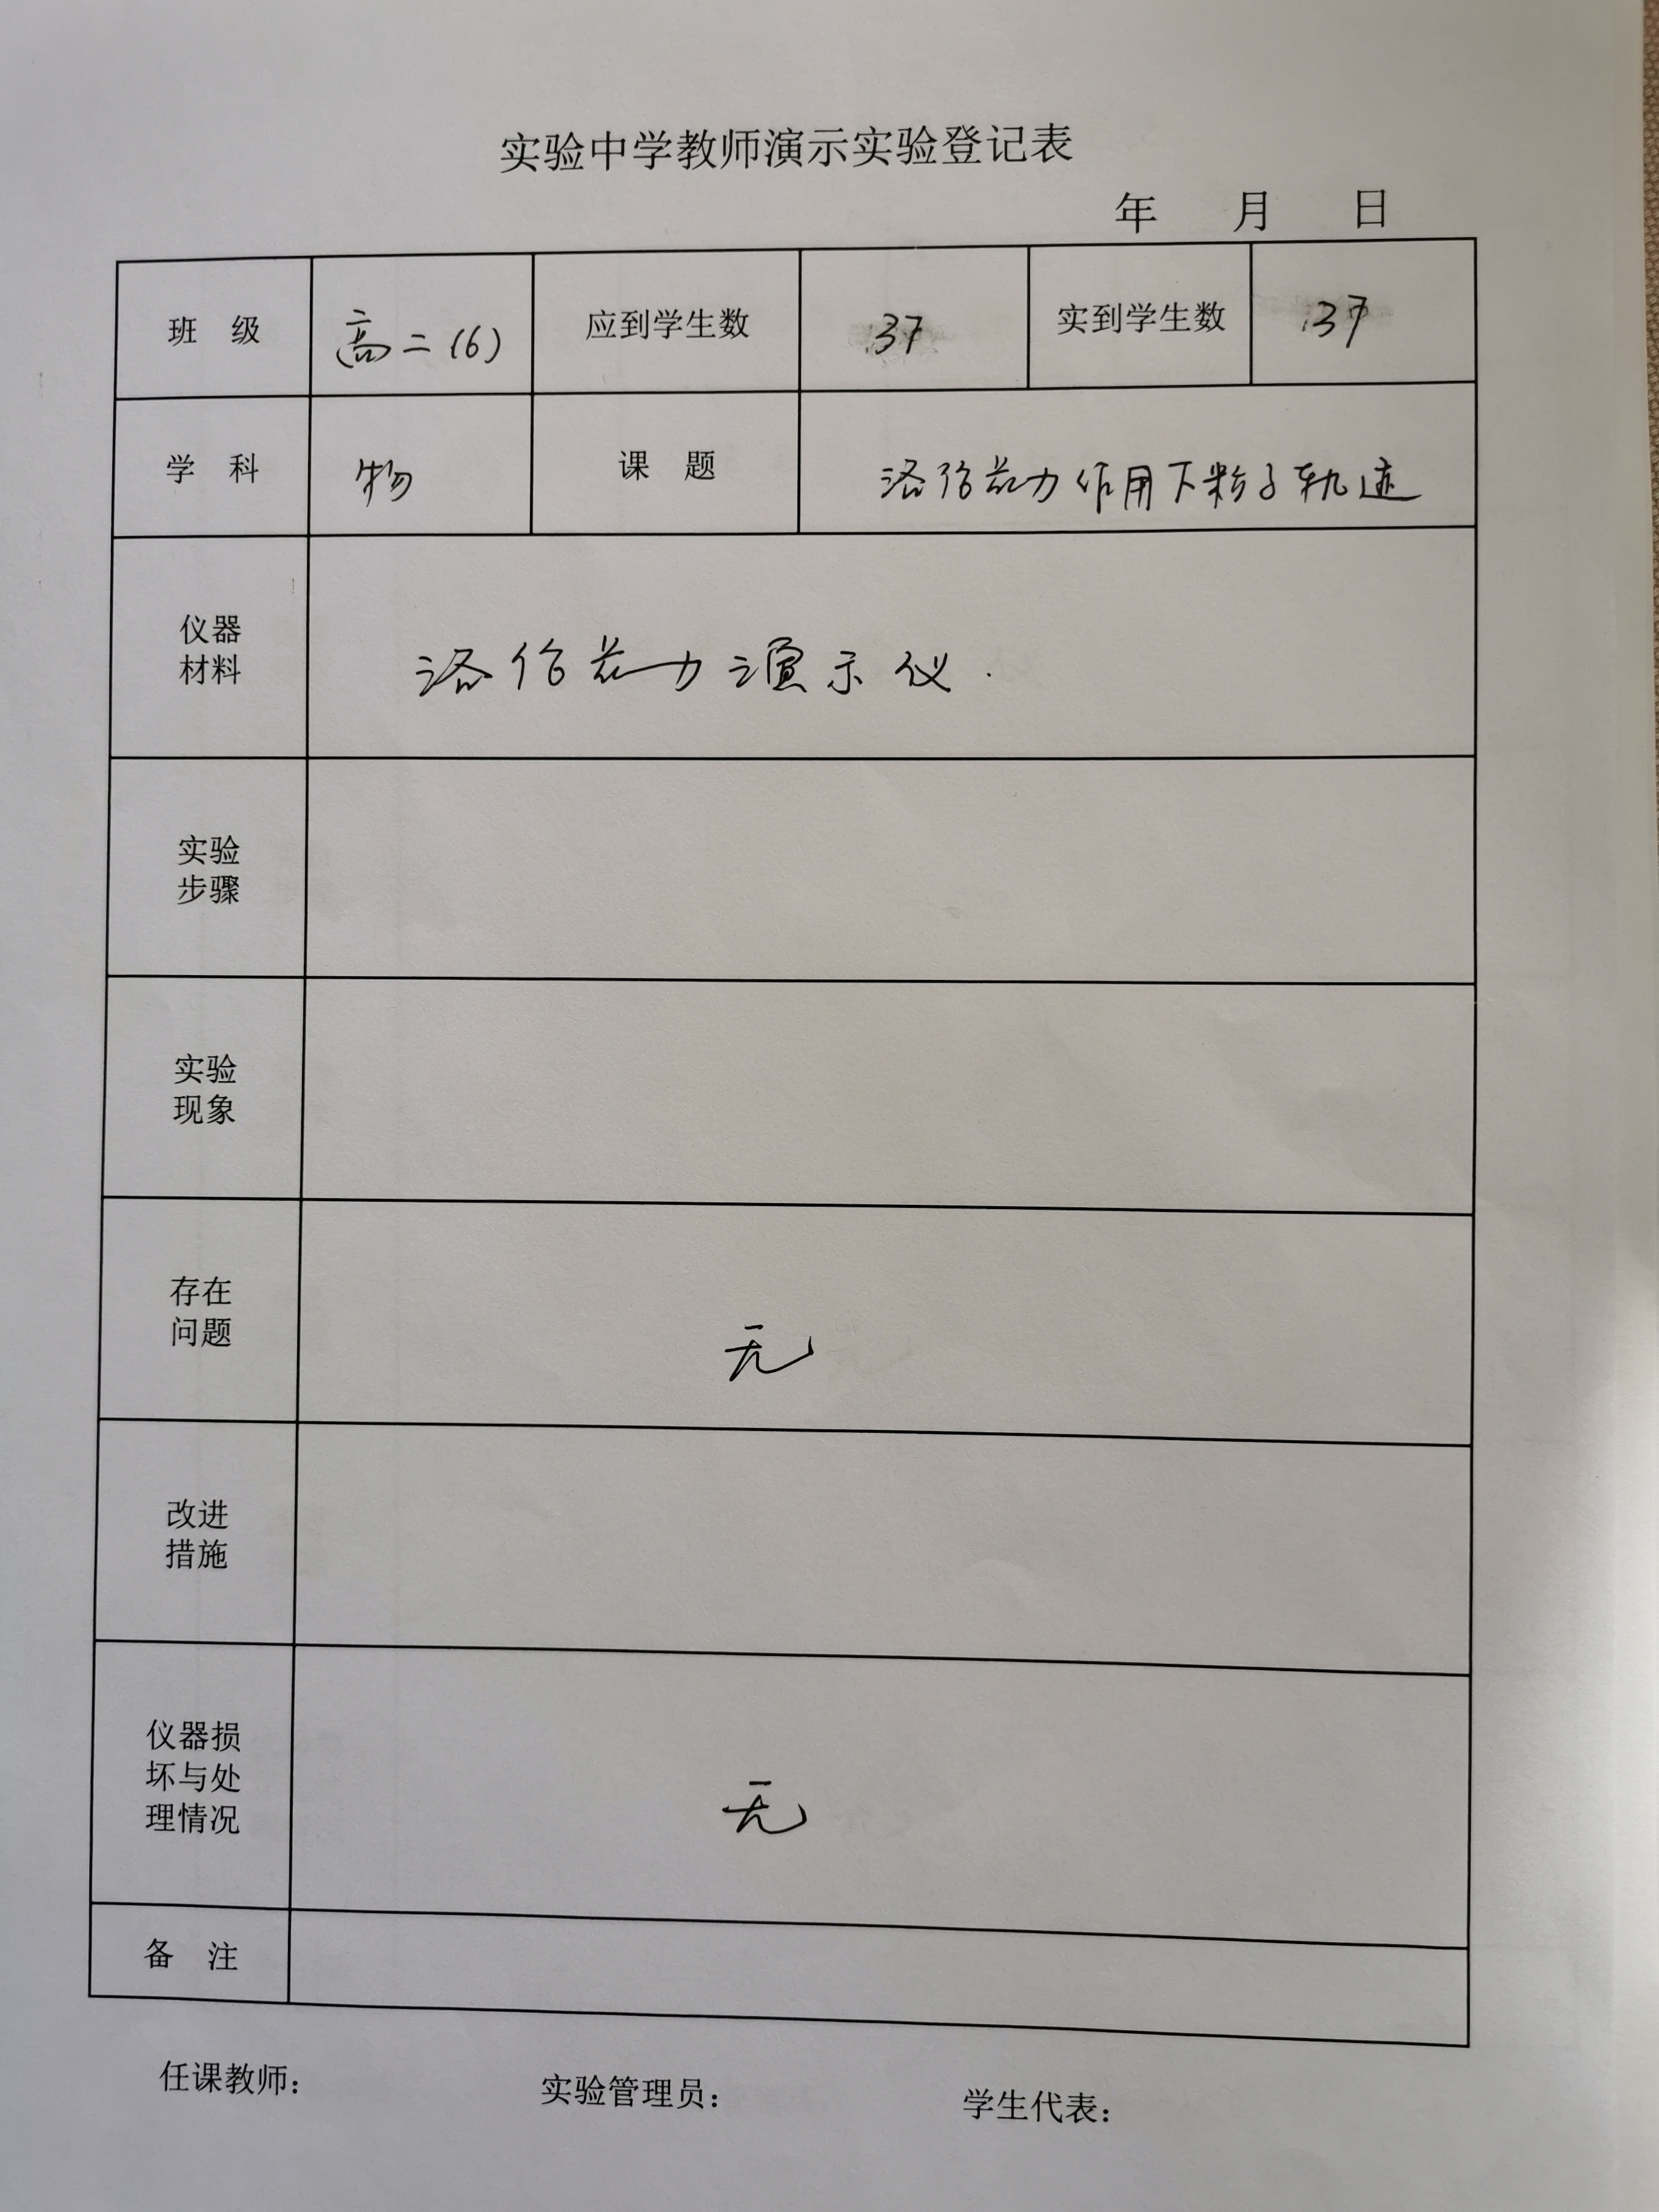 实验中学教师演示实验登记表
年 月 日
班 级 高二(6) 应到学生数 37 实到学生数 37
学 科 物 课 题 洛伦兹力作用下粒子轨迹
仪器
材料
洛伦兹力演示仪.
实验
步骤
实验
现象
存在
问题
无
改进
措施
仪器损
坏与处
理情况
无
备 注
任课教师: 实验管理员: 学生代表: